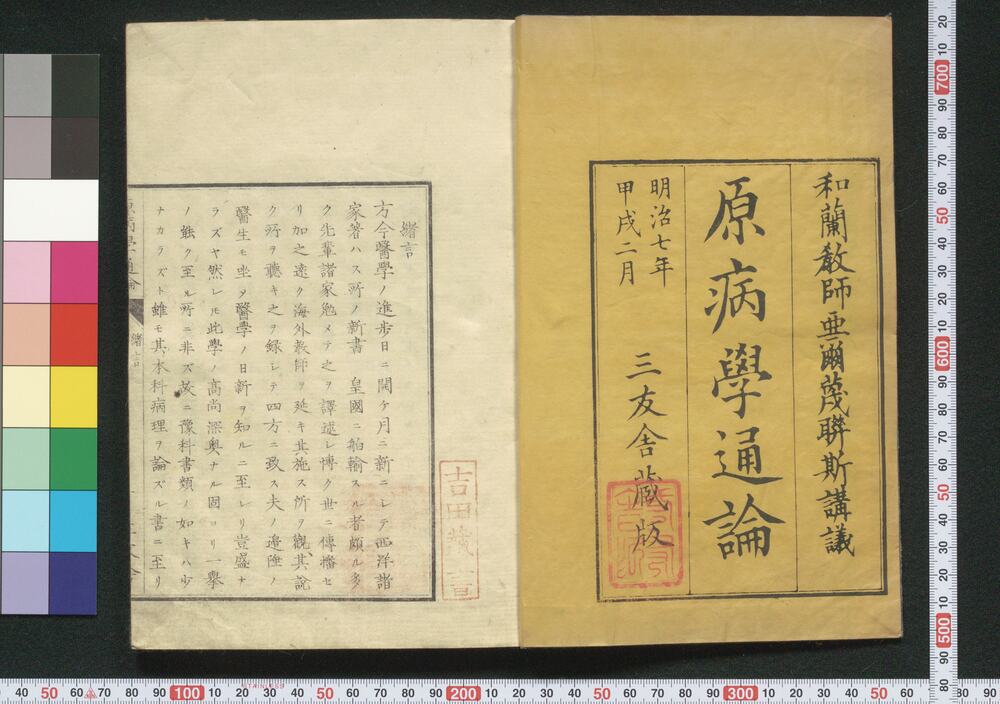 和蘭教師亜爾蔑聯斯講議
原病學通論
明治七年
甲戌二月
三友舎蔵版
緒言
方今醫學ノ進歩日ニ開ケ月ニ新ニシテ西洋諸
家著ハス所ノ新書　皇國ニ舶輸スル者頗ル多
ク先輩諸家勉メテ之ヲ譯述シ博ク世ニ傳播セ
リ加之遠ク海外教師ヲ延キ其施ス所ヲ觀其說
ク所ヲ聽キ之ヲ録シテ四方ニ致ス夫ノ邉陲ノ
醫生モ坐ヲ醫學ノ日新ヲ知ルニ至レリ豈盛ナ
ラズヤ然レモ此學ノ高尚深奥ナル固ヨリ一擧
ノ能ク至ル所ニ非ズ故ニ豫科書類ノ如キハ少
ナカラズト雖モ其本科病理ヲ論ズル書ニ至リ
原病學通論
緒言
吉田蔵書
40 50 60 70 80 90 100 10 20 30 40 50 60 70 80 90 200 10 20 30 40 50 60 70 80 90 300 10 20 30 40 50 60 80 90
20 10 700 90 80 70 60 50 40 30 20 10 600 90 80 70 60 50 40 30 20 10 500 90 80